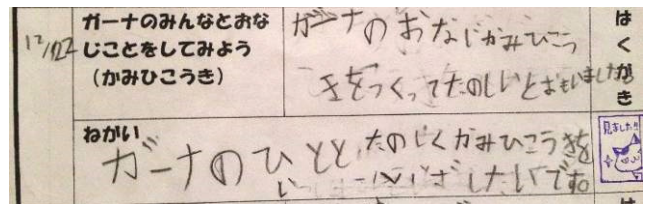 12/22
ガーナのみんなとおな
じことをしてみよう
(かみひこうき)
ガーナのおなじかみひこう
きをつくってたのしいとおもいました
はくがき
ねがい
ガーナのひとと たのしくかみひこうきを
したいです。
見ました!!
は